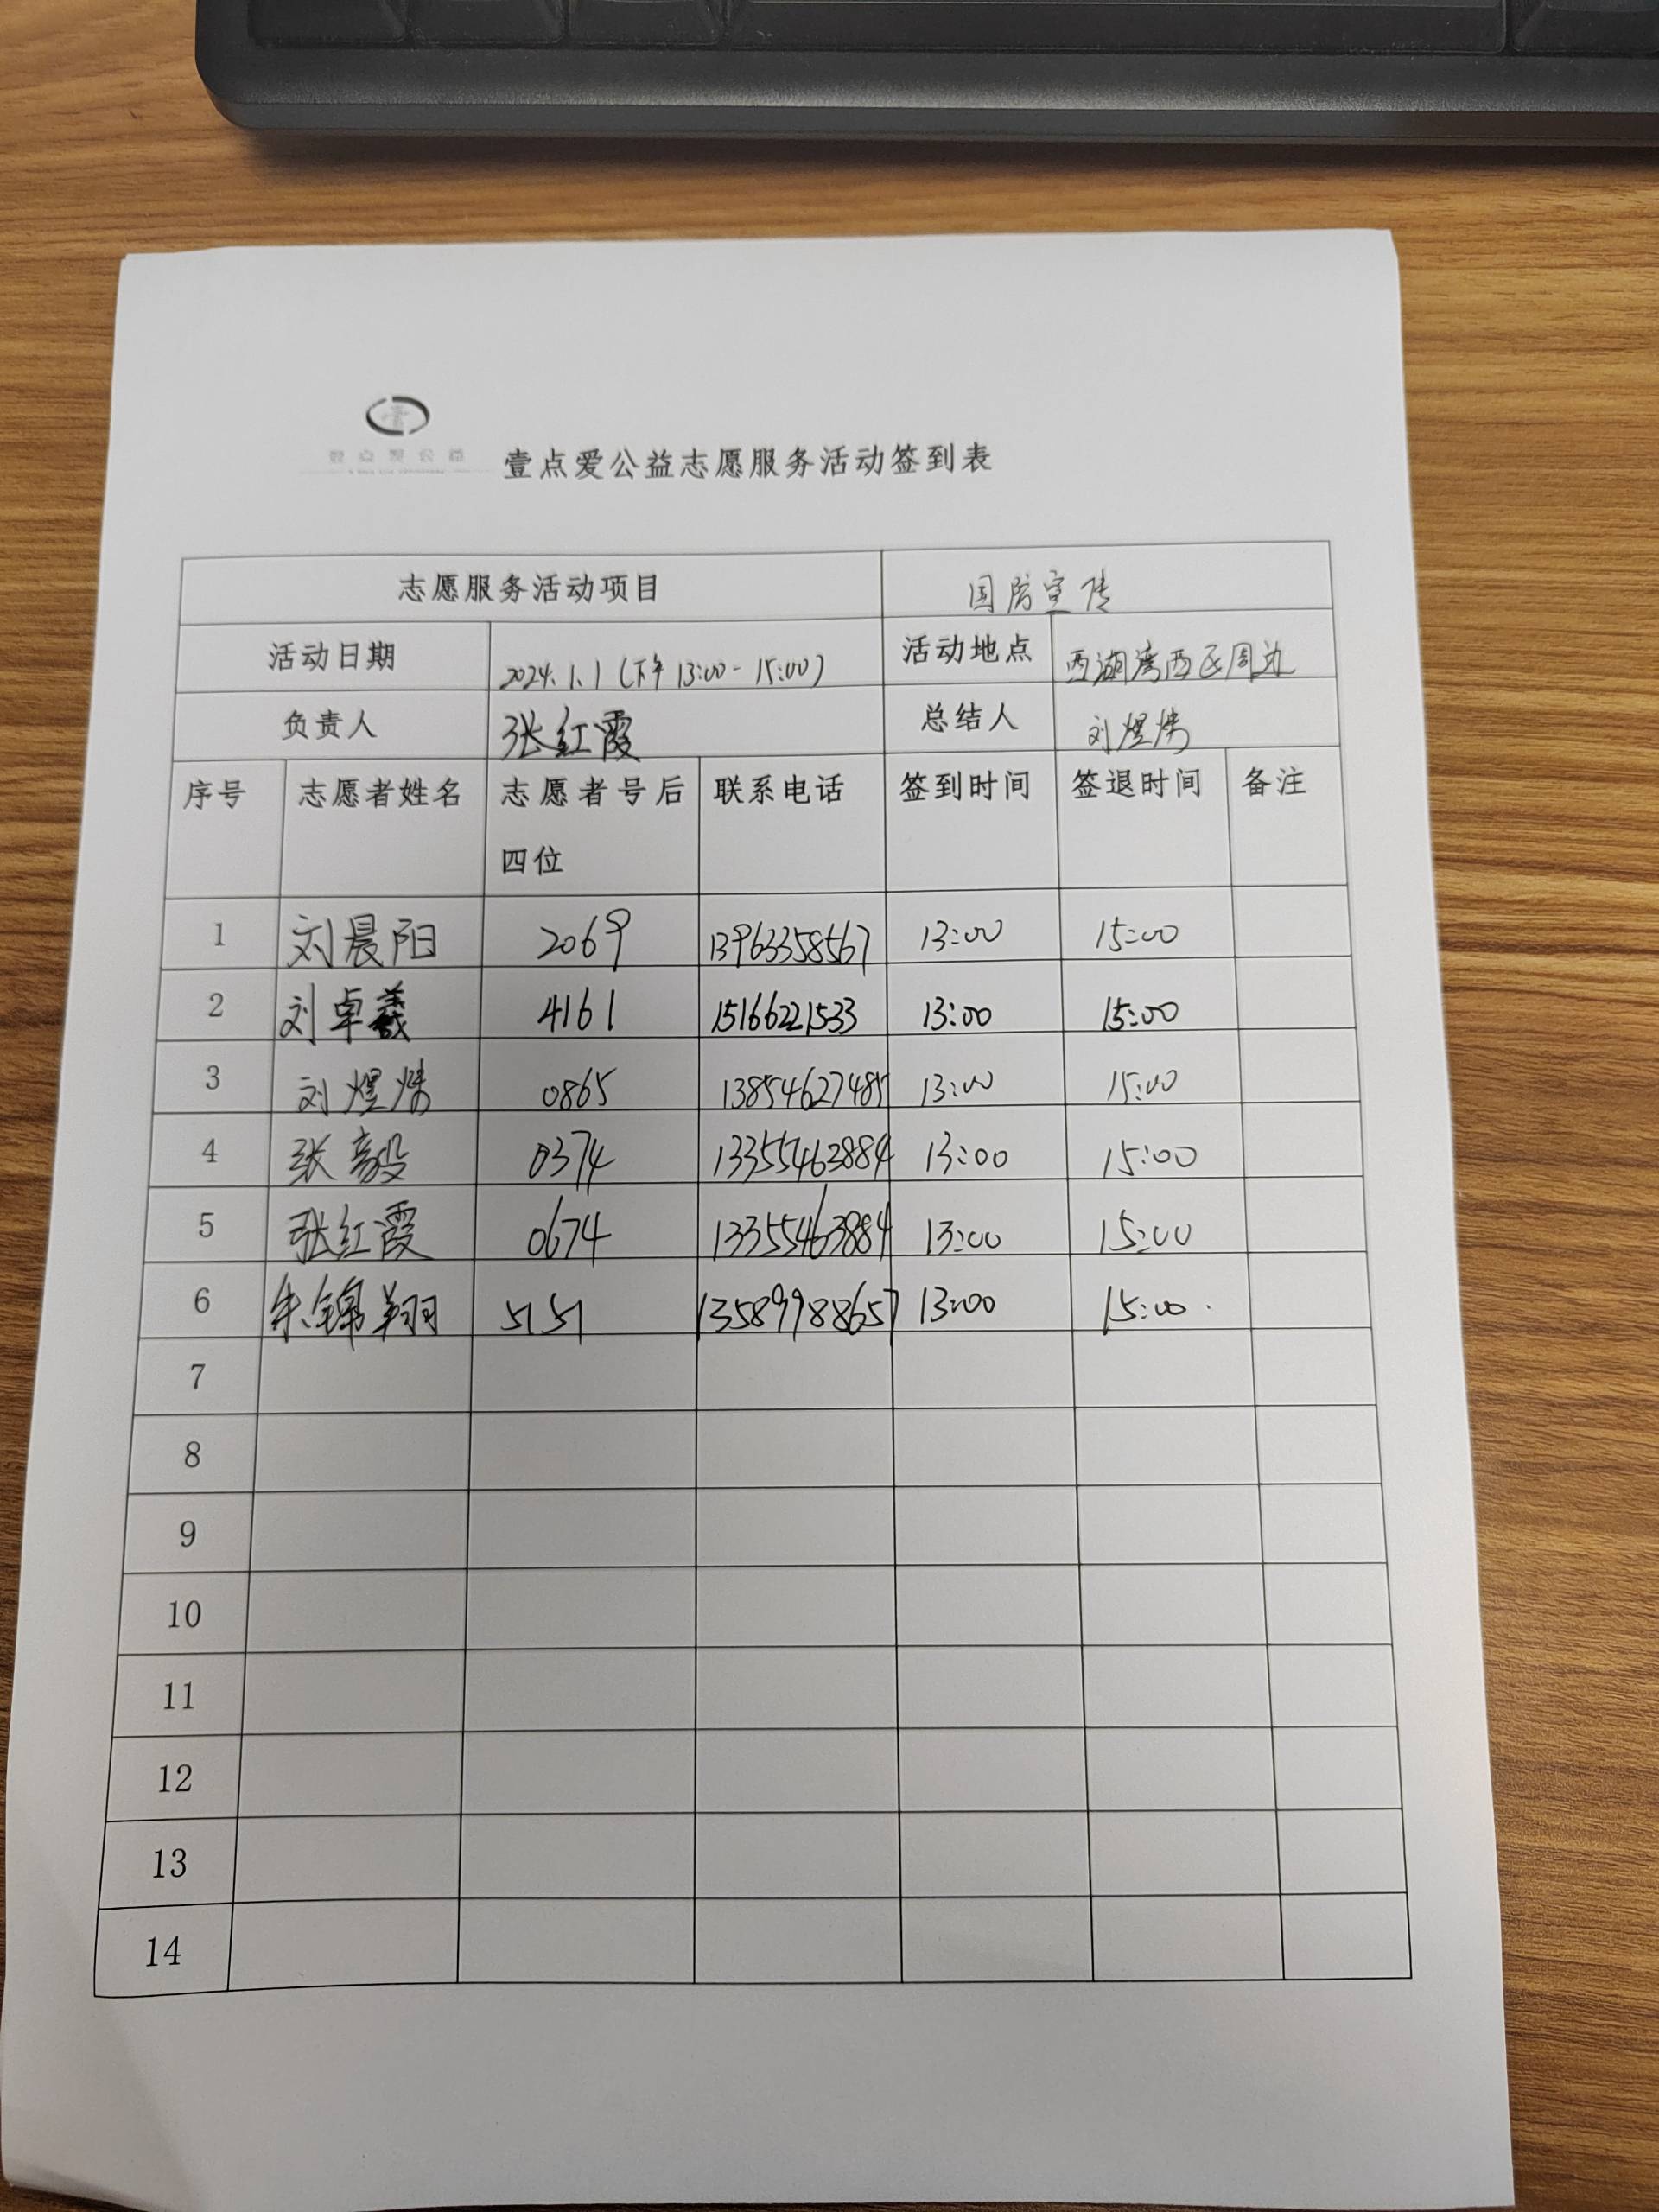 壹点爱公益
壹点爱公益志愿服务活动签到表
志愿服务活动项目 国防宣传
活动日期 2024.1.1(下午13:00-15:00) 活动地点 西湖湾西区周边
负责人 张红霞 总结人 刘煜炜
序号 志愿者姓名 志愿者号后四位 联系电话 签到时间 签退时间 备注
1 刘晨阳 2069 13963358567 13:00 15:00
2 刘卓羲 4161 15166221533 13:00 15:00
3 刘煜炜 0865 13854627485 13:00 15:00
4 张毅 0374 13355463884 13:00 15:00
5 张红霞 0674 13355463884 13:00 15:00
6 朱锦翔 5151 13589988657 13:00 15:00
7
8
9
10
11
12
13
14